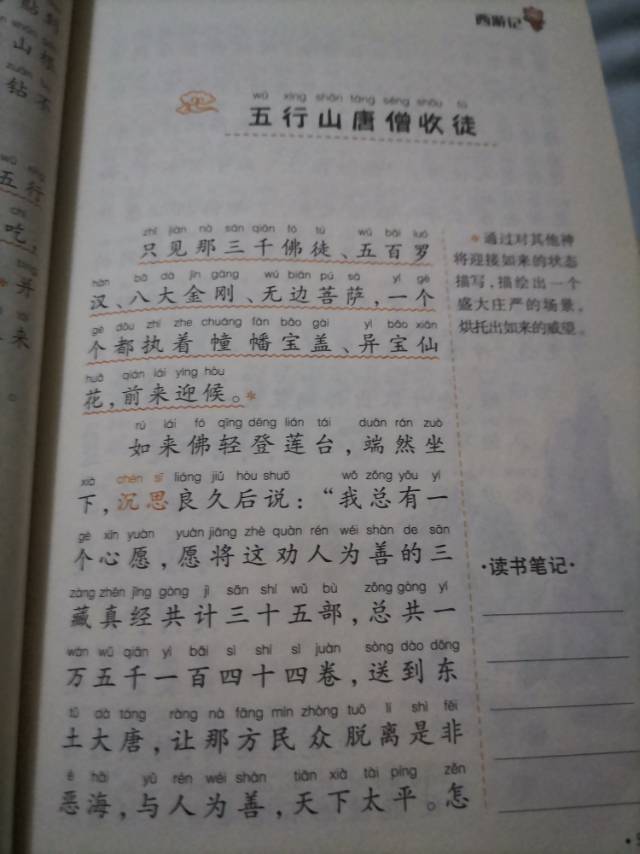 西游记
wǔ xíng shān táng sēng shōu tú
五行山唐僧收徒
zhǐ jiàn nà sān qiān fó tú wǔ bǎi luó
只见那三千佛徒、五百罗
hàn bā dà jīn gāng wú biān pú sà yí gè
汉、八大金刚、无边菩萨，一个
gè dōu zhí zhe chuáng fān bǎo gài yì bǎo xiān
个都执着幢幡宝盖、异宝仙
huā qián lái yíng hòu
花，前来迎候。*
rú lái fó qīng dēng lián tái duān rán zuò
如来佛轻登莲台，端然坐
xià chén sī liáng jiǔ hòu shuō wǒ zǒng yǒu yí
下，沉思良久后说：“我总有一
gè xīn yuàn yuàn jiāng zhè quàn rén wéi shàn de sān
个心愿，愿将这劝人为善的三
zàng zhēn jīng gòng jì sān shí wǔ bù zǒng gòng yí
藏真经共计三十五部，总共一
wàn wǔ qiān yì bǎi sì shí sì juàn sòng dào dōng
万五千一百四十四卷，送到东
tǔ dà táng ràng nà fāng mín zhòng tuō lí shì fēi
土大唐，让那方民众脱离是非
è hǎi yǔ rén wéi shàn tiān xià tài píng zěn
恶海，与人为善，天下太平。怎
*通过对其他神
将迎接如来的状态
描写，描绘出一个
盛大庄严的场景，
烘托出如来的威望。
·读书笔记·
山
zuān
钻不
五行
chī
吃
来